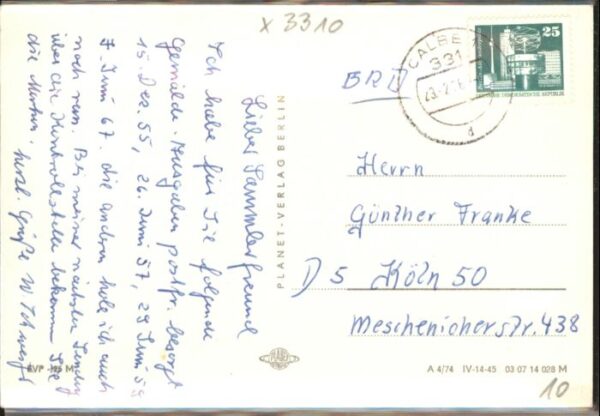 x 3310
Lieber Sammlerfreund
Ich habe für Sie folgende
Gemälde-Ausgaben postfr. besorgt
15 Dez. 55, 26. Juni 57, 29 Juni 59
7. Juni 67. die anderen hole ich auch
noch ran. Bei meiner nächsten Sendung
über die Kontrollstelle bekommen Sie
die Marken. herzl. Grüße W.
PLANET-VERLAG BERLIN
PLANET
EVP -,25 M
CALBE
331
d
25
DEUTSCHE DEMOKRATISCHE REPUBLIK
BRD
Herrn
Günther Franke
D 5 Köln 50
Meschenicherstr. 438
A 4/74 IV-14-45 03 07 14 028 M
10